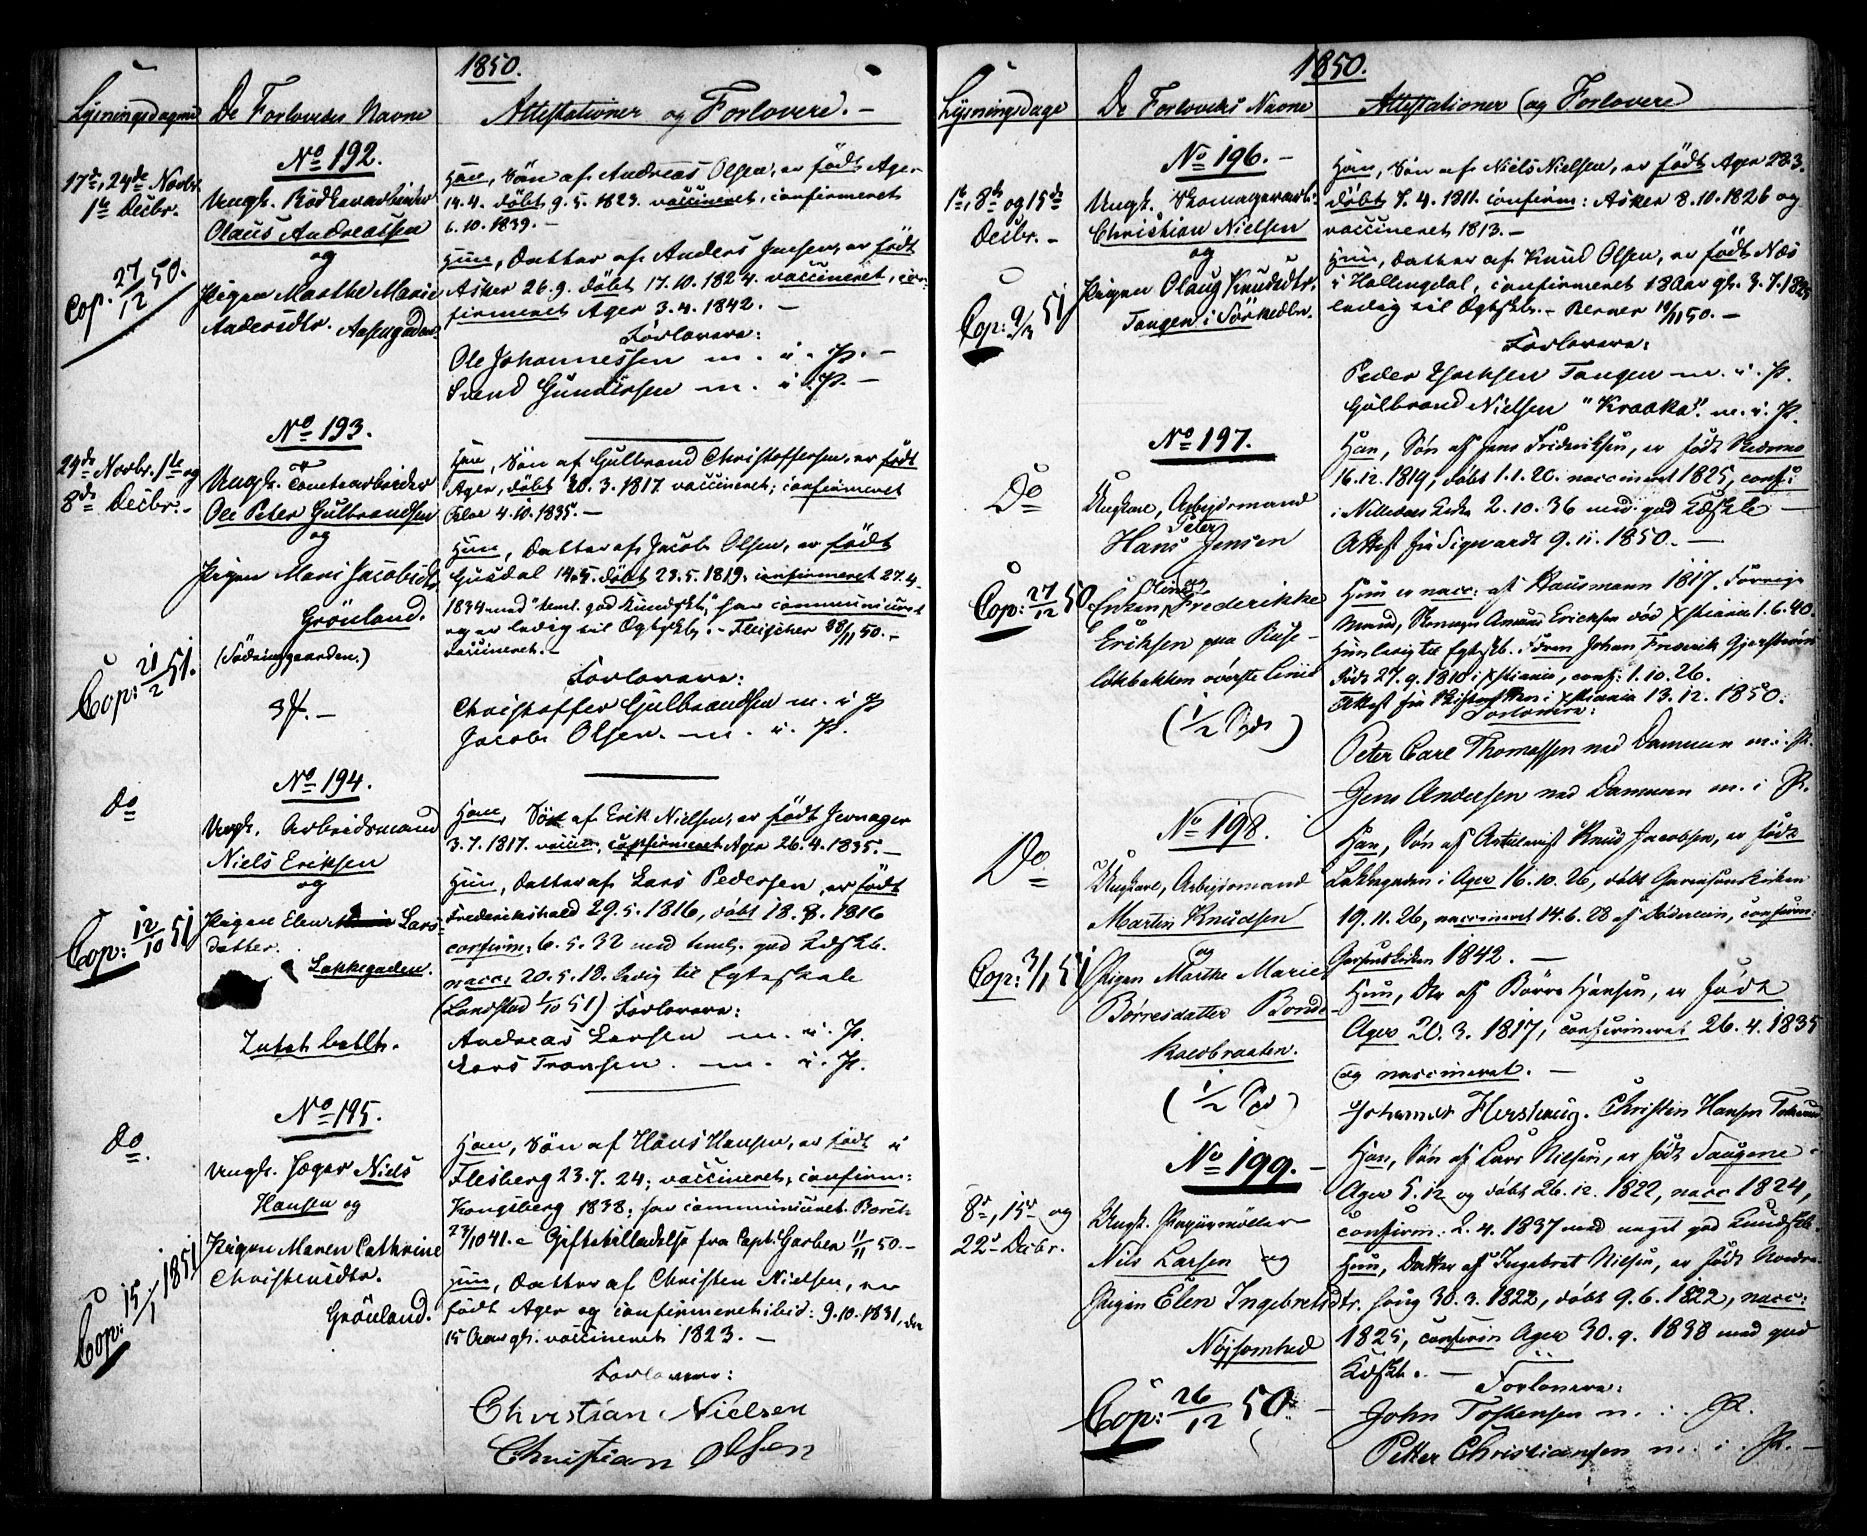 1850.
Lysningsdagene De Forlovedes Navne Attestationer og Forlovere. –
No 192.
17de, 24de Novbr.
1te Decbr.
Cop. 27/12 50.
Ungk.
Olaus Andreassen
og
Pigen Marthe Marie
Andersdtr. Aasengaden.
Han, Søn af Andreas Olsen, er født Ager
14.4. døbt 9.5.1823. vaccineret, confirmeret
6.10.1839. –
Hun, Datter af Anders Jensen, er født
Asker 26.9. døbt 17.10.1824. vaccineret, con-
firmeret Ager 3.4.1842. –
Forlovere:
Ole Johannessen m. i. P. –
Svend Gundersen m. i. P. –
No 193.
24de Novbr. 1te og
8de Decbr. –
Cop: 21/2 51.
Ungk. Tomtearbeider
Ole Peter Gulbrandsen
og
Pigen Mari Jacobsdt.
Grönland.
3f. –
Han, Søn af Gulbrand Christoffersen, er født
Ager, døbt 30.3.1817. vaccineret; confirmeret
4.10.1835. –
Hun, Datter af Jacob Olsen, er født
Gusdal 14.5. døbt 23.5.1819. confirmeret 27.4.
1834 med "teml. god Kundskb", har communiceret
og er ledig til Ægtskb. – Fleischer 28/11 50. –
vaccineret. –
Forlovere:
Christoffer Gulbrandsen m. i P
Jacob Olsen. m. i. P.
No 194.
do
Cop: 12/10 51
Ungk. Arbeidsmand
Niels Eriksen
og
Pigen Elen Lars-
datter.
Lakkegaden.
Intet betlt.
Han, Søn af Erik Nielsen, er født Jevnager
3.7.1817. vaccin, confirmeret Ager 26.4.1835. –
Hun, Datter af Lars Pedersen, er født
Frederikshald 29.5.1816, døbt 18.8.1816
confirm: 6.5.32 med teml. god Kdskb.
vacc: 20.5.19. ledig til Egteskab
(Landstad 1/10 51) Forlovere:
Andreas Larsen m. i. P.
Lars Transen. m. i. P.
No 195.
do.
Cop: 15/1 1851
Ungk. Jæger Niels
Hansen og
Pigen Maren Cathrine
Christensdtr.
Grönland.
Han, Søn af Hans Hansen, er født i
Flesberg 23.7.24; vaccineret, confirm:
Kongsberg 1838; har communiceret
23/10 41. – Giftetilladelse fra Capt. Garben 11/11 50. –
Hun, Datter af Christen Nielsen, er
født Ager og confirmeret ibid: 9.10.1831,
15 Aar gl. vaccineret 1823. –
Forlovere:
Christian Nielsen
Christian Olsen
1850.
Lysningsdage De Forlovedes Navne Attestationer og Forlovere
No 196. –
1te, 8de og 15de
Decbr. –
Cop: 9/3 51
Ungk. Skomagerarb:
Christian Nielsen
og
Pigen Olaug Knudsdtr.
Tangen i Sörkedln.
Han, Søn af Niels Nielsen, er født Ager 28.3.
døbt 7.4.1811. confirm: Asker 8.10.1826 og
vaccineret 1813. –
Hun, Datter af Knud Olsen, er født Næs
i Hallingdal, confirmeret 18 Aar gl. 3.7.
ledig til Egtskb. – Berner 19/11 50. –
Forlovere:
Peder Tangen m. i. P.
Gulbrand Nielsen "Kraaka". m. i. P.
No 197.
Do
Cop: 27/12 50
Ungkarl, Arbeidsmand
Hans Peter Jensen
Enken Oline Frederikke
Eriksen paa Ruse-
løkbakken øverste Linie
(1/2 Spd)
Han, Søn af Jens Frideriksen, er født
16.12.1819, døbt 1.1.20. vaccineret 1825, conf:
i 2.10.36 med god Kdskb –
Attest fra Sigwardt 9.11.1850. –
Hun er vacc: af Hausmann 1817. Forrige
Mand, Amund Ericksen død Xstiania 1.6.40.
Hun ledig til Egtskb. Johan Frederik
født 27.9.1810 i Xstiania, conf: 1.10.26.
Attest fra i Xstiania 13.12.1850.
Forlovere:
Peter Carl Thomassen ved Dammen m. i. P.
Jens Andersen ved Dammen m. i P.
No 198.
Do
Cop: 3/1 51
Ungkarl, Arbeidsmand
Martin Knudsen
og
Pigen Marthe Marie
Børresdatter Bonde-
kaldbraaten.
(1/2 Spd)
Han, Søn af Artillerist Knud Jacobsen, er født
Lakkegaden i Ager 16.10.26, døbt Garnisonskirken
19.11.26, vaccineret 14.6.28 af Döderlein, confirm:
1842. –
Hun, Dtr af Börre Hansen, er født
Ager 20.3.1817, confirmeret 26.4.1835
og vaccineret. –
Johannes Hershaug. Christen Hansen
No 199. –
8de, 15de og
22de Decbr.
Ungk. Papiermøller
Nils Larsen og
Pigen Elen Ingebretsdtr.
Nøjsomhed
Cop: 26/12 50. –
Han, Søn af Lars Nielsen, er født Saugene i
Ager 5.12 og døbt 26.12.1822, vacc 1824,
confirm. 2.4.1837 med meget god Kundskb.
Hun, Datter af Ingebret Nilsen, er født Nordre-
houg 30.3.1822, døbt 9.6.1822, vacc:
1825, confirm Ager 30.9.1838 med god
Kdskb. –
Forlovere:
John Tostensen m. i. P.
Petter Christiansen m. i. P. –